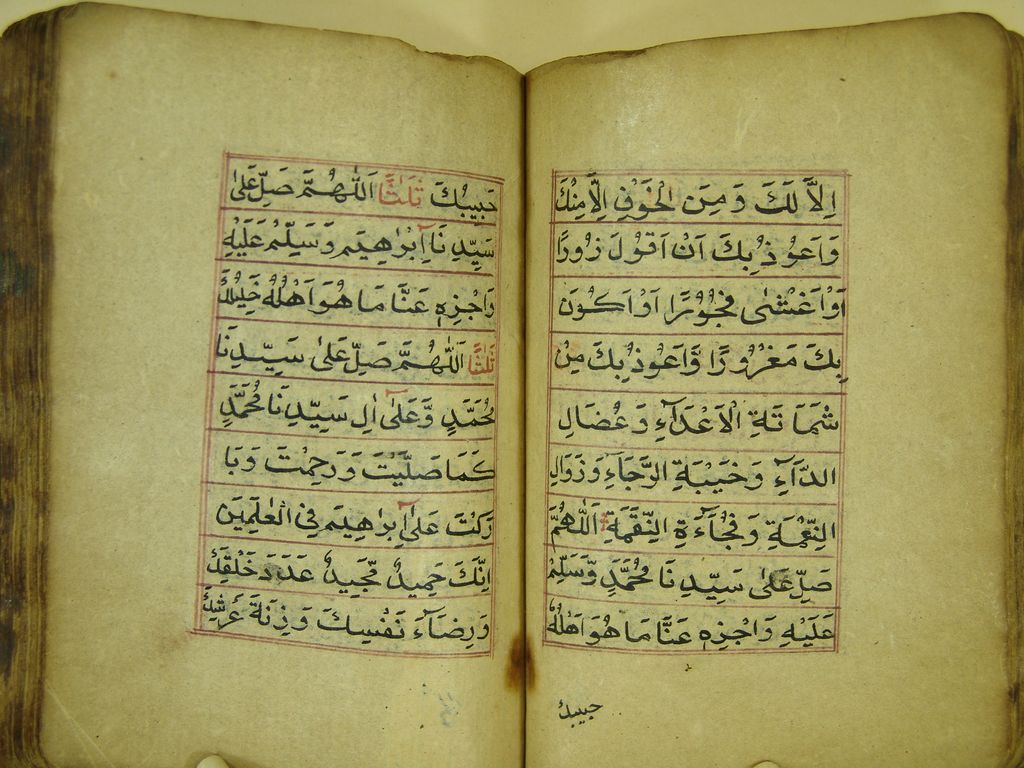 اِلاَّ لَكَ وَ مِنَ الْخَوْفِ اِلاَّ مِنْكَ
وَ اَعُوْذُ بِكَ اَنْ اَقُوْلَ زُوْرًا
اَوْ اَغْشٰى فُجُوْرًا اَوْ اَكُوْنَ
بِكَ مَغْرُوْرًا وَّ اَعُوْذُ بِكَ مِنْ
شَمَاتَةِ الْاَعْدَآءِ وَ عُضَالِ
الدَّآءِ وَ خَيْبَةِ الرَّجَآءِ وَ زَوَالِ
النِّعْمَةِ وَ فُجَآءَةِ النِّقْمَةِ اَللّٰهُمَّ
صَلِّ عَلٰى سَيِّدِنَا مُحَمَّدٍ وَّ سَلِّمْ
عَلَيْهِ وَ اجْزِهِ عَنَّا مَا هُوَ اَهْلُهٗ
حبيبك
حَبِيْبُكَ ثَلٰثًا اَللّٰهُمَّ صَلِّ عَلٰى
سَيِّدِنَا اِبْرٰهِيْمَ وَ سَلِّمْ عَلَيْهِ
وَ اجْزِهِ عَنَّا مَا هُوَ اَهْلُهٗ خَلِيْلُكَ
ثَلٰثًا اَللّٰهُمَّ صَلِّ عَلٰى سَيِّدِنَا
مُحَمَّدٍ وَّ عَلٰى اٰلِ سَيِّدِنَا مُحَمَّدٍ
كَمَا صَلَّيْتَ وَ رَحِمْتَ وَ بَا
رَكْتَ عَلٰى اِبْرٰهِيْمَ فِي الْعٰلَمِيْنَ
اِنَّكَ حَمِيْدٌ مَّجِيْدٌ عَدَدَ خَلْقِكَ
وَ رِضَآءَ نَفْسِكَ وَ زِنَةَ عَرْشِكَ